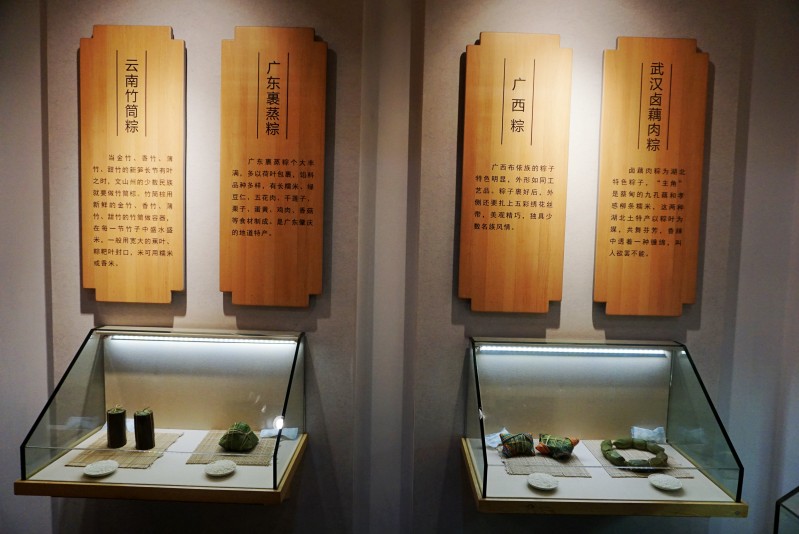 云南竹筒粽
当金竹、香竹、薄
竹、甜竹的新笋长节有叶
之时，文山州的少数民族
就要做竹筒粽。竹筒粽用
新鲜的金竹、香竹、薄
竹、甜竹的竹筒做容器，
在每一节竹子中盛水盛
米，一般用宽大的蕉叶、
粽粑叶封口，米可用糯米
或香米。
广东裹蒸粽
广东裹蒸粽个大丰
满，多以荷叶包裹，馅料
品种多样，有长糯米、绿
豆仁、五花肉、干莲子、
栗子、蛋黄、鸡肉、香菇
等食材制成，是广东肇庆
的地道特产。
广西粽
广西布依族的粽子
特色明显，外形如同工
艺品。粽子裹好后，外
侧还要扎上五彩绣花丝
带，美观精巧，独具少
数名族风情。
武汉卤藕肉粽
卤藕肉粽为湖北
特色粽子。“主角”
是蔡甸的九孔藕和孝
感柳条糯米，这两种
湖北土特产以粽叶为
媒，共舞芬芳，香辣
中透着一种缠绵，叫
人欲罢不能。